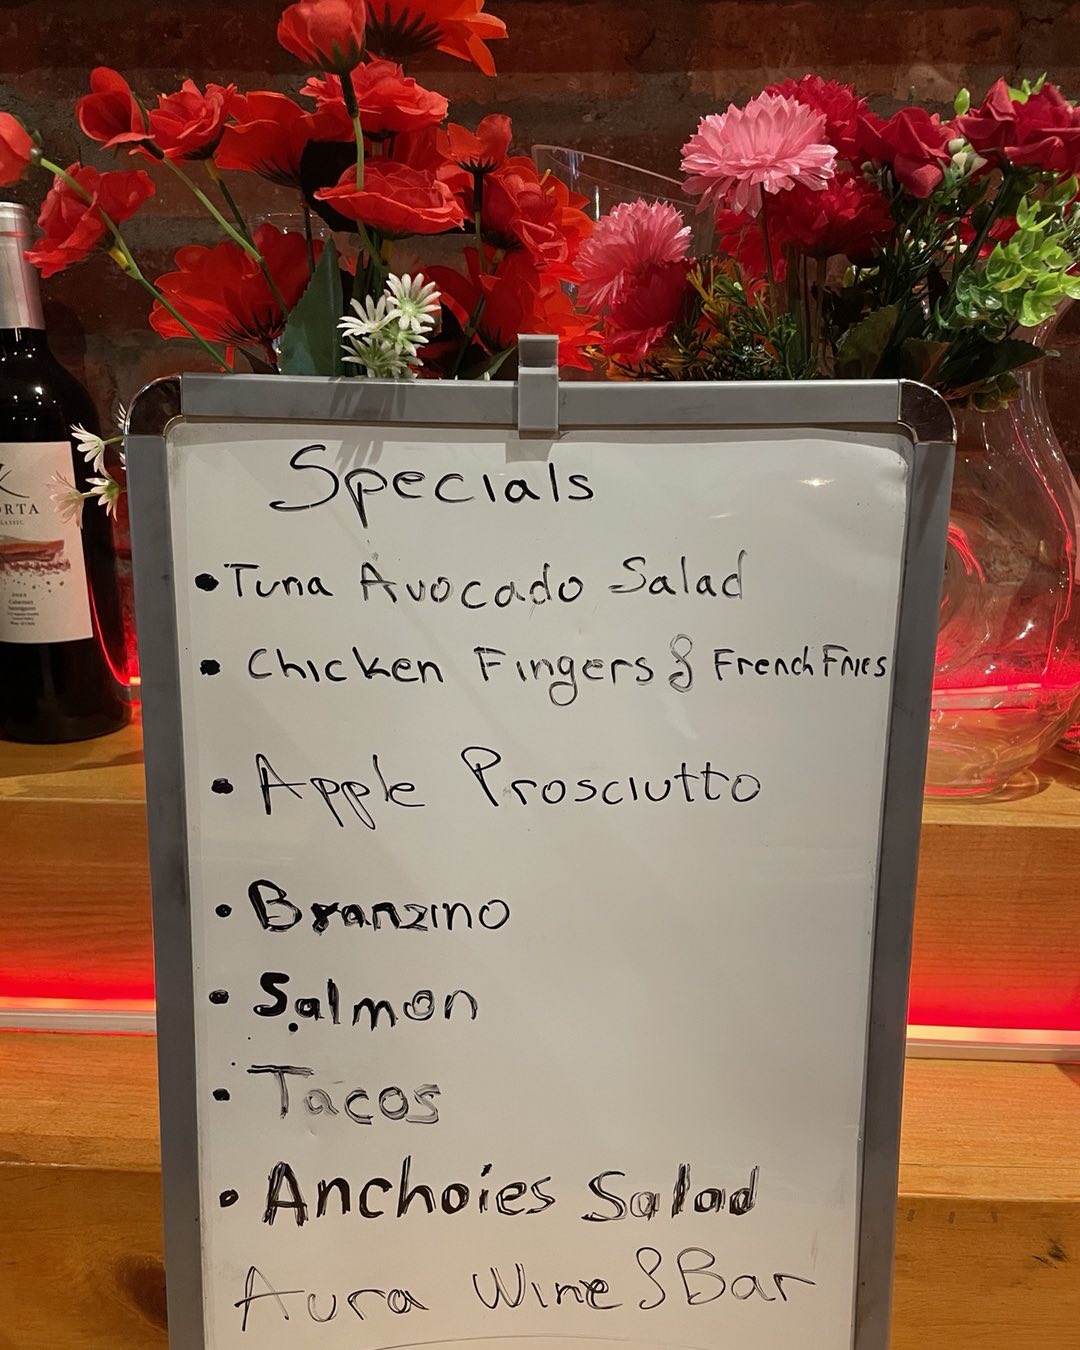 Specials
• Tuna Avocado Salad
• Chicken Fingers & French Fries
• Apple Prosciutto
• Branzino
• Salmon
• Tacos
• Anchoies Salad
Aura Wine & Bar
ORTA
CLASSIC
2013
Cabernet
Sauvignon